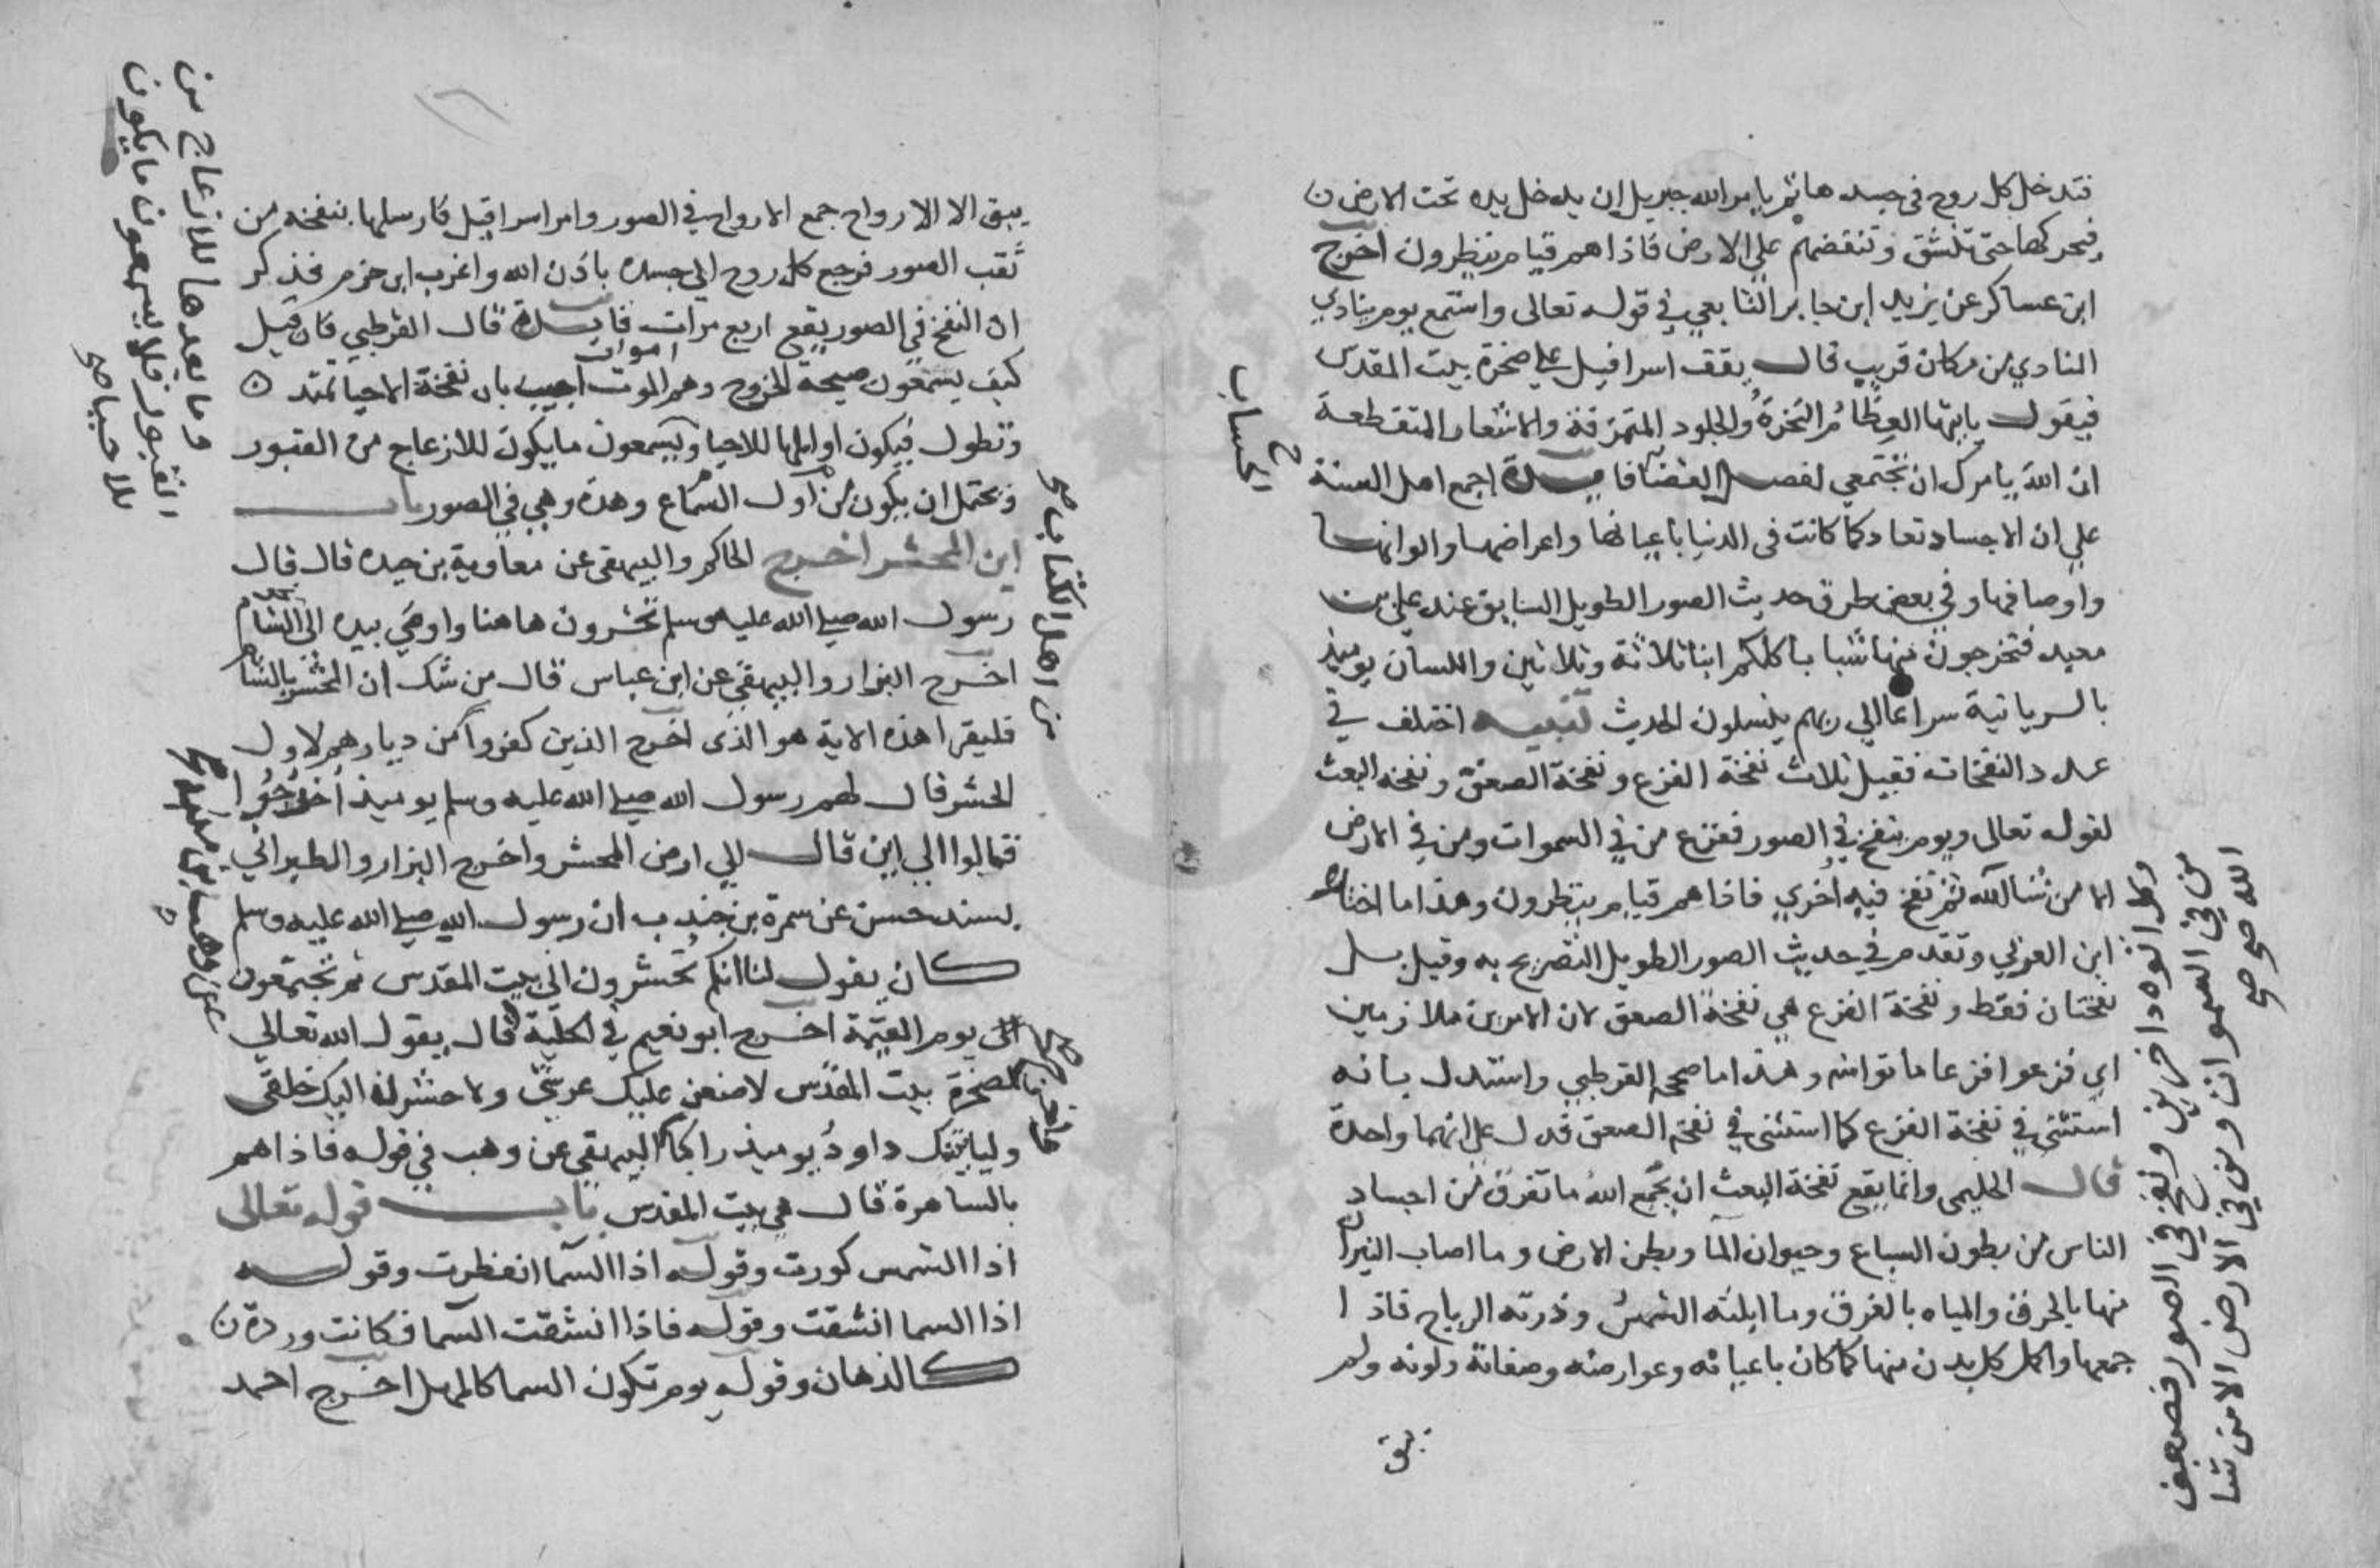 فتدخل كل روح في جسدها ثم يامر الله جبريل ان يدخل يده تحت الارض
فيحركها حتى تنشق وتنفضهم على الارض فاذا هم قيام ينظرون اخرج
ابن عساكر عن يزيد ابن جابر التابعي في قوله تعالى واستمع يوم ينادي
المنادي من مكان قريب قال يقف اسرافيل على صخرة بيت المقدس
فيقول يايتها العظام النخرة والجلود المتمزقة والاشعار المتقطعة
ان الله يامرك ان تجتمعي لفصل القضا فايدة اجمع اهل السنة
الحساب
على ان الاجساد تعاد كما كانت في الدنيا باعيانها واعراضها والوانها
واوصافها وفي بعض طرق حديث الصور الطويل السابق عند علي بن
معبد فتخرجون منها شبابا كلكم ابنا ثلاثة وثلاثين واللسان يوميذ
بالسريانية سراعا الى ربهم ينسلون الحديث تنبيه اختلف في
عدد النفخات فقيل ثلاث نفخة الفزع ونفخة الصعق ونفخة البعث
لقوله تعالى ويوم ينفخ في الصور ففزع من في السموات ومن في الارض
الا من شا الله ثم نفخ فيه اخرى فاذا هم قيام ينظرون وهذا ما اختاره
وكل اتوه داخرين ونفخ في الصور فصعق
من في السموات ومن في الارض الا من شا
الله صح صح
ابن العربي وتقدم في حديث الصور الطويل التصريح به وقيل بل
نفختان فقط ونفخة الفزع هي نفخة الصعق لان الامرين متلازمين
اي فزعوا فزعا ماتوا منه وهذا ما صححه القرطبي واستدل بانه
استثنى في نفخة الفزع كما استثنى في نفخة الصعق فدل على انهما واحدة
قال الحليمي وانما يقع نفخة البعث ان يجمع الله ما تفرق من اجساد
الناس من بطون السباع وحيوان الما وبطن الارض وما اصاب النيران
منها بالحرق والمياه بالغرق وما ابلته الشمس وذرته الرياح فاذا
جمعها واكمل كل بدن منها كما كان باعيانه وعوارضه وصفاته ولونه ولم
يبق
يبق الا الارواح جمع الارواح في الصور وامر اسرافيل فارسلها بنفخه من
ثقب الصور فرجع كل روح الى جسده باذن الله واغرب ابن حزم فذكر
ان النفخ في الصور يقع اربع مرات فايدة قال القرطبي فان قيل
كيف يسمعون صيحة الخروج وهم اموات اجيب بان نفخة الاحيا تمتد
وتطول فيكون اوايلها للاحيا ويسمعون ما يكون للازعاج من القبور
وما بعدها للازعاج من
القبور فلا يسمعون ما يكون
للاحيا صح
ويحتمل ان يكون من اول السماع وهذه وهي في الصور باب
اين المحشر اخرج الحاكم والبيهقي عن معاوية بن حيدة قال قال
رسول الله صلى الله عليه وسلم تحشرون هاهنا واومى بيده الى الشام
اخرج البزار والبيهقي عن ابن عباس قال من شك ان المحشر بالشام
فليقرا هذه الاية هو الذي اخرج الذين كفروا من ديارهم لاول
من اهل الكتاب صح
الحشر قال لهم رسول الله صلى الله عليه وسلم يوميذ اخرجوا
فقالوا الى اين قال الى ارض المحشر واخرج البزار والطبراني
بسند حسن عن سمرة بن جندب ان رسول الله صلى الله عليه وسلم
كان يقول لنا انكم تحشرون الى بيت المقدس ثم تجتمعون
يوم القيمة اخرج ابو نعيم في الحلية قال يقول الله تعالى
عن وهب بن منبه صح
لصخرة بيت المقدس لاضعن عليك عرشي ولاحشرن اليك خلقي
ولياتينك داود يوميذ راكبا البيهقي عن وهب في قوله فاذا هم
بالساهرة قال هي بيت المقدس باب قوله تعالى
اذا الشمس كورت وقوله اذا السما انفطرت وقوله
اذا السما انشقت وقوله فاذا انشقت السما فكانت وردة
كالدهان وقوله يوم تكون السما كالمهل اخرج احمد